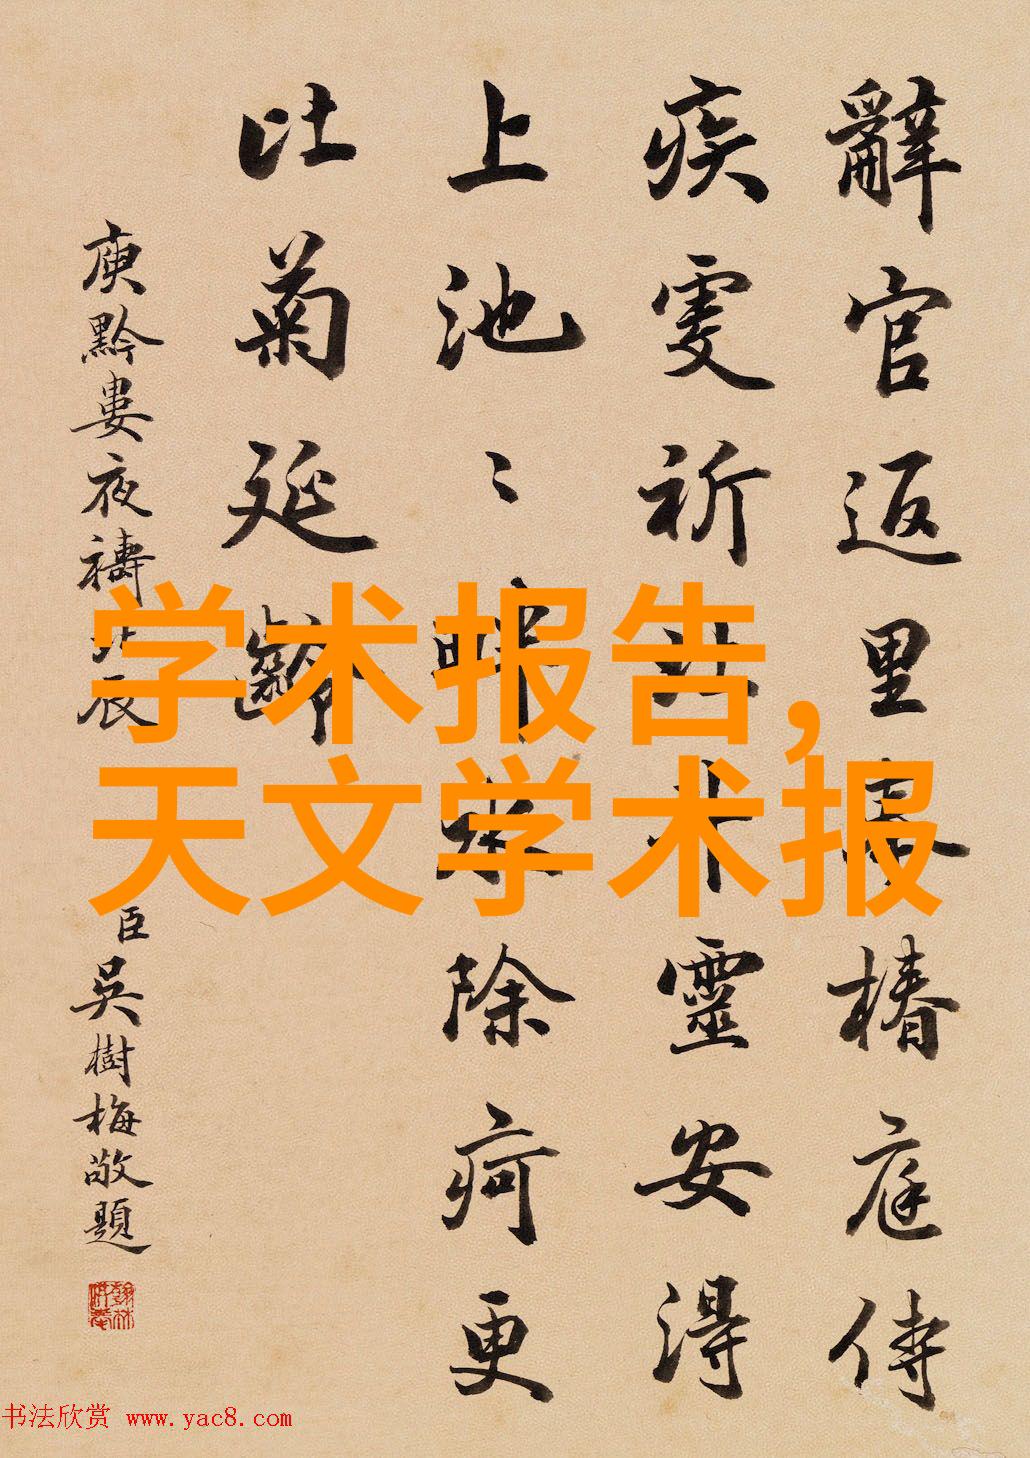 辭官返里椿庭侍
疾虔祈北斗靈安得
上池〻畔水除疴更
比菊延齡
庾黔婁夜禱北辰
臣吳樹梅敬題
学术报告，
天文学术报
书法欣赏 www.yac8.com